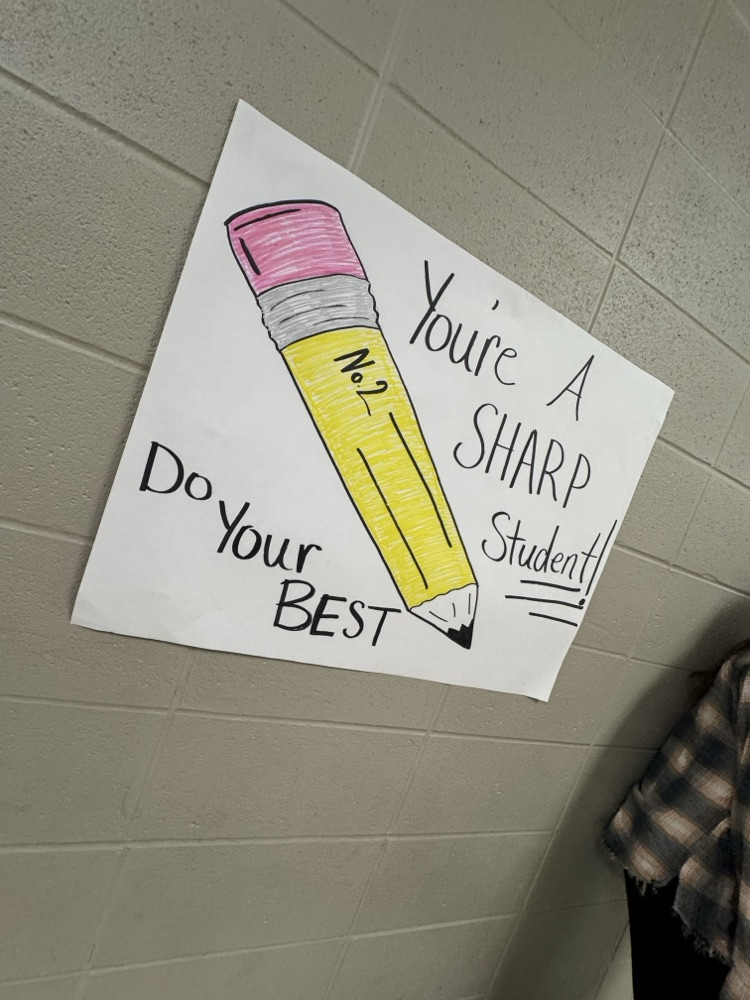 You're A
SHARP
Student!
No.2
Do
Your
BEST